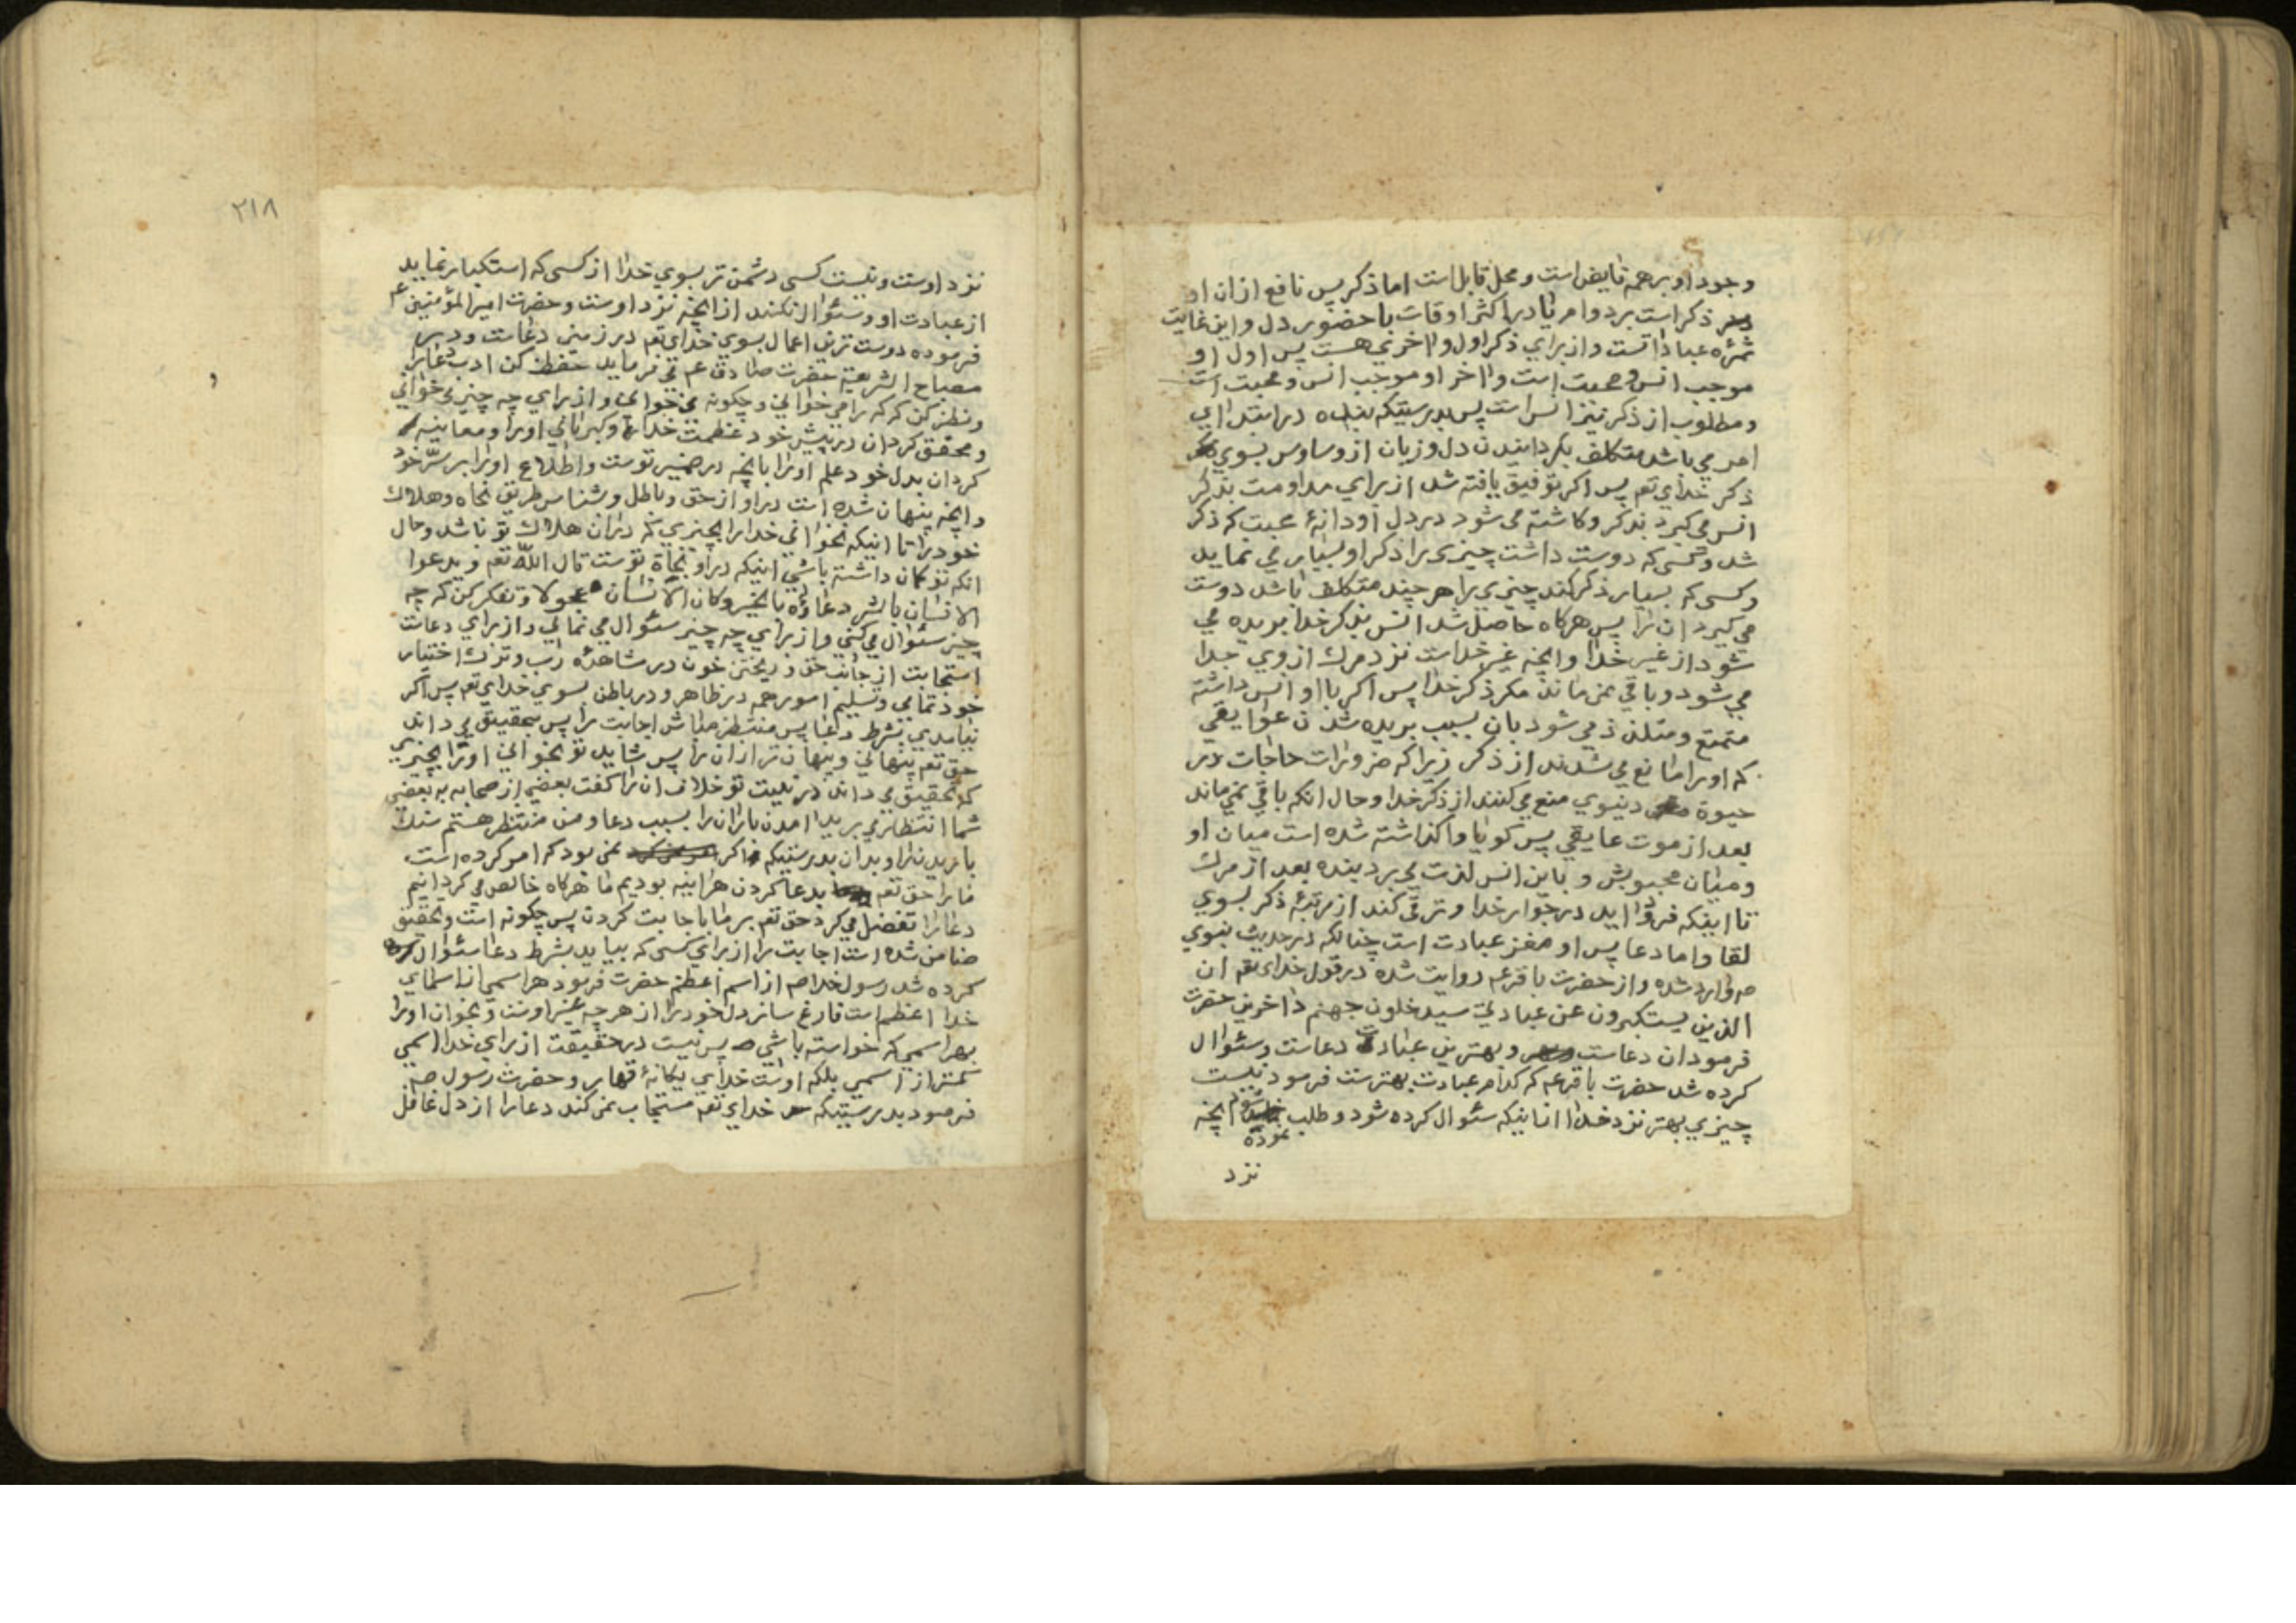 وجود او بر همه فایض است و محل قابل است اما ذکر پس نافع از ان او
ذکر است بر دوام یا در اکثر اوقات با حضور دل و این غایت
ثمره عباداتست و از برای ذکر اول و اخری هست پس اول او
موجب انس و محبت است و اخر او موجب انس و محبت است
و مطلوب از ذکر نیز انس است پس بدرستیکه بنده در ابتدای
امر می باشد متکلف بگردانیدن دل و زبان از وساوس بسوی
ذکر خدای تعم پس اکر توفیق یافته شد از برای مداومت بذکر
انس می کیرد بذکر و کاشته می شود در دل او دانهٔ محبت که ذکر
شد و کسی که دوست داشت چیزی را ذکر او بسیار می نماید
و کسی که بسیار ذکر کند چیزی را هر چند متکلف باشد دوست
می کیرد ان را پس هرکاه حاصل شد انس بذکر خدا بریده می
شود از غیر خدا و انچه غیر خداست نزد مرك از وی جدا
می شود و باقی نمی ماند مکر ذکر خدا پس اکر با او انس داشته
متمتع و متلذذ می شود بان بسبب بریده شدن عوایقی
که او را مانع می شدند از ذکر زیرا که ضرورات حاجات در
حیوة دنیوی منع می کنند از ذکر خدا و حال انکه باقی نمی ماند
بعد از موت عایقی پس کویا واکذاشته شده است میان او
و میان محبوبش و باین انس لذت می برد بنده بعد از مرك
تا اینکه فرود اید در جوار خدا و ترقی کند از مرتبهٔ ذکر بسوی
لقا و اما دعا پس او مغز عبادت است چنانکه در حدیث نبوی
ص وارد شده و از حضرت باقرعم روایت شده در قول خدای تعم ان
الذین یستکبرون عن عبادتی سیدخلون جهنم داخرین حضرت
فرمود ان دعاست و بهترین عبادت دعاست و سئوال
کرده شد حضرت باقرعم که کدام عبادت بهترست فرمود نیست
چیزی بهتر نزد خدا از اینکه سئوال کرده شود و طلب نموده شود انچه
نزد
۲۱۸
نزد اوست و نیست کسی دشمن تر بسوی خدا از کسی که استکبار نماید
از عبادت او و سئوال نکند از انچه نزد اوست و حضرت امیرالمؤمنین عم
فرموده دوست ترین اعمال بسوی خدای تعم در زمین دعاست و در
مصباح الشریعه حضرت صادق عم می فرماید حفظ کن ادب دعا را
و نظر کن که که را می خوانی و چکونه می خوانی و از برای چه چیز می خوانی
و محقق کردان در پیش خود عظمت خدا و کبریائی او را و معاینه
کردان بدل خود علم او را بانچه در ضمیر توست و اطلاع او را بر سرّ خود
و انچه پنهان شده است در او از حق و باطل و شناس طریق نجاه و هلاك
خود را تا اینکه نخوانی خدا را بچیزی که در ان هلاك تو باشد و حال
انکه تو کمان داشته باشی اینکه در او نجاة توست قال اللّه تعم و یدعوا
الانسان بالشر دعاؤه بالخیر و کان الانسان عجولا و تفکر کن که چه
چیز سئوال می کنی و از برای چه چیز سئوال می نمائی و از برای دعاست
استجابت از جانب حق و ریختن خون در مشاهده رب و ترك اختیار
خود نمایی و تسلیم امور همه در ظاهر و در باطن بسوی خدای تعم پس اکر
نیامدی بشرط دعا پس منتظر مباش اجابت را پس بتحقیق می داند
حق تعم پنهانی و پنهان تر از ان را پس شاید تو بخوانی او را بچیزی
که بتحقیق می داند در نیت تو خلاف ان را کفت بعضی از صحابه به بعضی
شما انتظار می برید امدن باران را بسبب دعا و من منتظر هستم سنك
باریدن را و بدان بدرستیکه اکر نمی بود که امر کرده است
ما را حق تعم بدعا کردن هراینه بودیم ما هرکاه خالص می کردانیم
دعا را تفضل می کرد حق تعم بر ما باجابت کردن پس چکونه است و بتحقیق
ضامن شده است اجابت را از برای کسی که بیاید بشرط دعا سئوال
کرده شد رسول خدا صم از اسم اعظم حضرت فرمود هر اسمی از اسمای
خدا اعظم است فارغ ساز دل خود را از هر چه غیر اوست و بخوان او را
بهر اسمی که خواسته باشی پس نیست در حقیقت از برای خدا اسمی
کمتر از اسمی بلکه اوست خدای یکانهٔ قهار و حضرت رسول صم
فرمود بدرستیکه خدای تعم مستجاب نمی کند دعا را از دل غافل